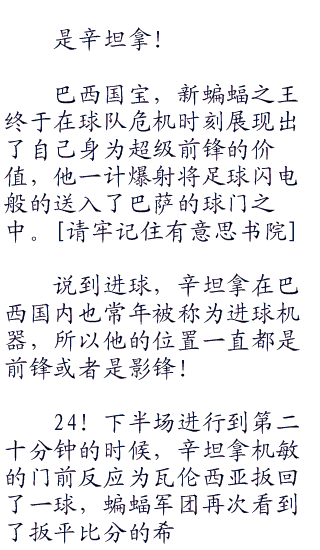 是辛坦拿！
巴西国宝，新蝙蝠之王
终于在球队危机时刻展现出
了自己身为超级前锋的价
值，他一计爆射将足球闪电
般的送入了巴萨的球门之
中。[请牢记住有意思书院]
说到进球，辛坦拿在巴
西国内也常年被称为进球机
器，所以他的位置一直都是
前锋或者是影锋！
24！下半场进行到第二
十分钟的时候，辛坦拿机敏
的门前反应为瓦伦西亚扳回
了一球，蝙蝠军团再次看到
了扳平比分的希